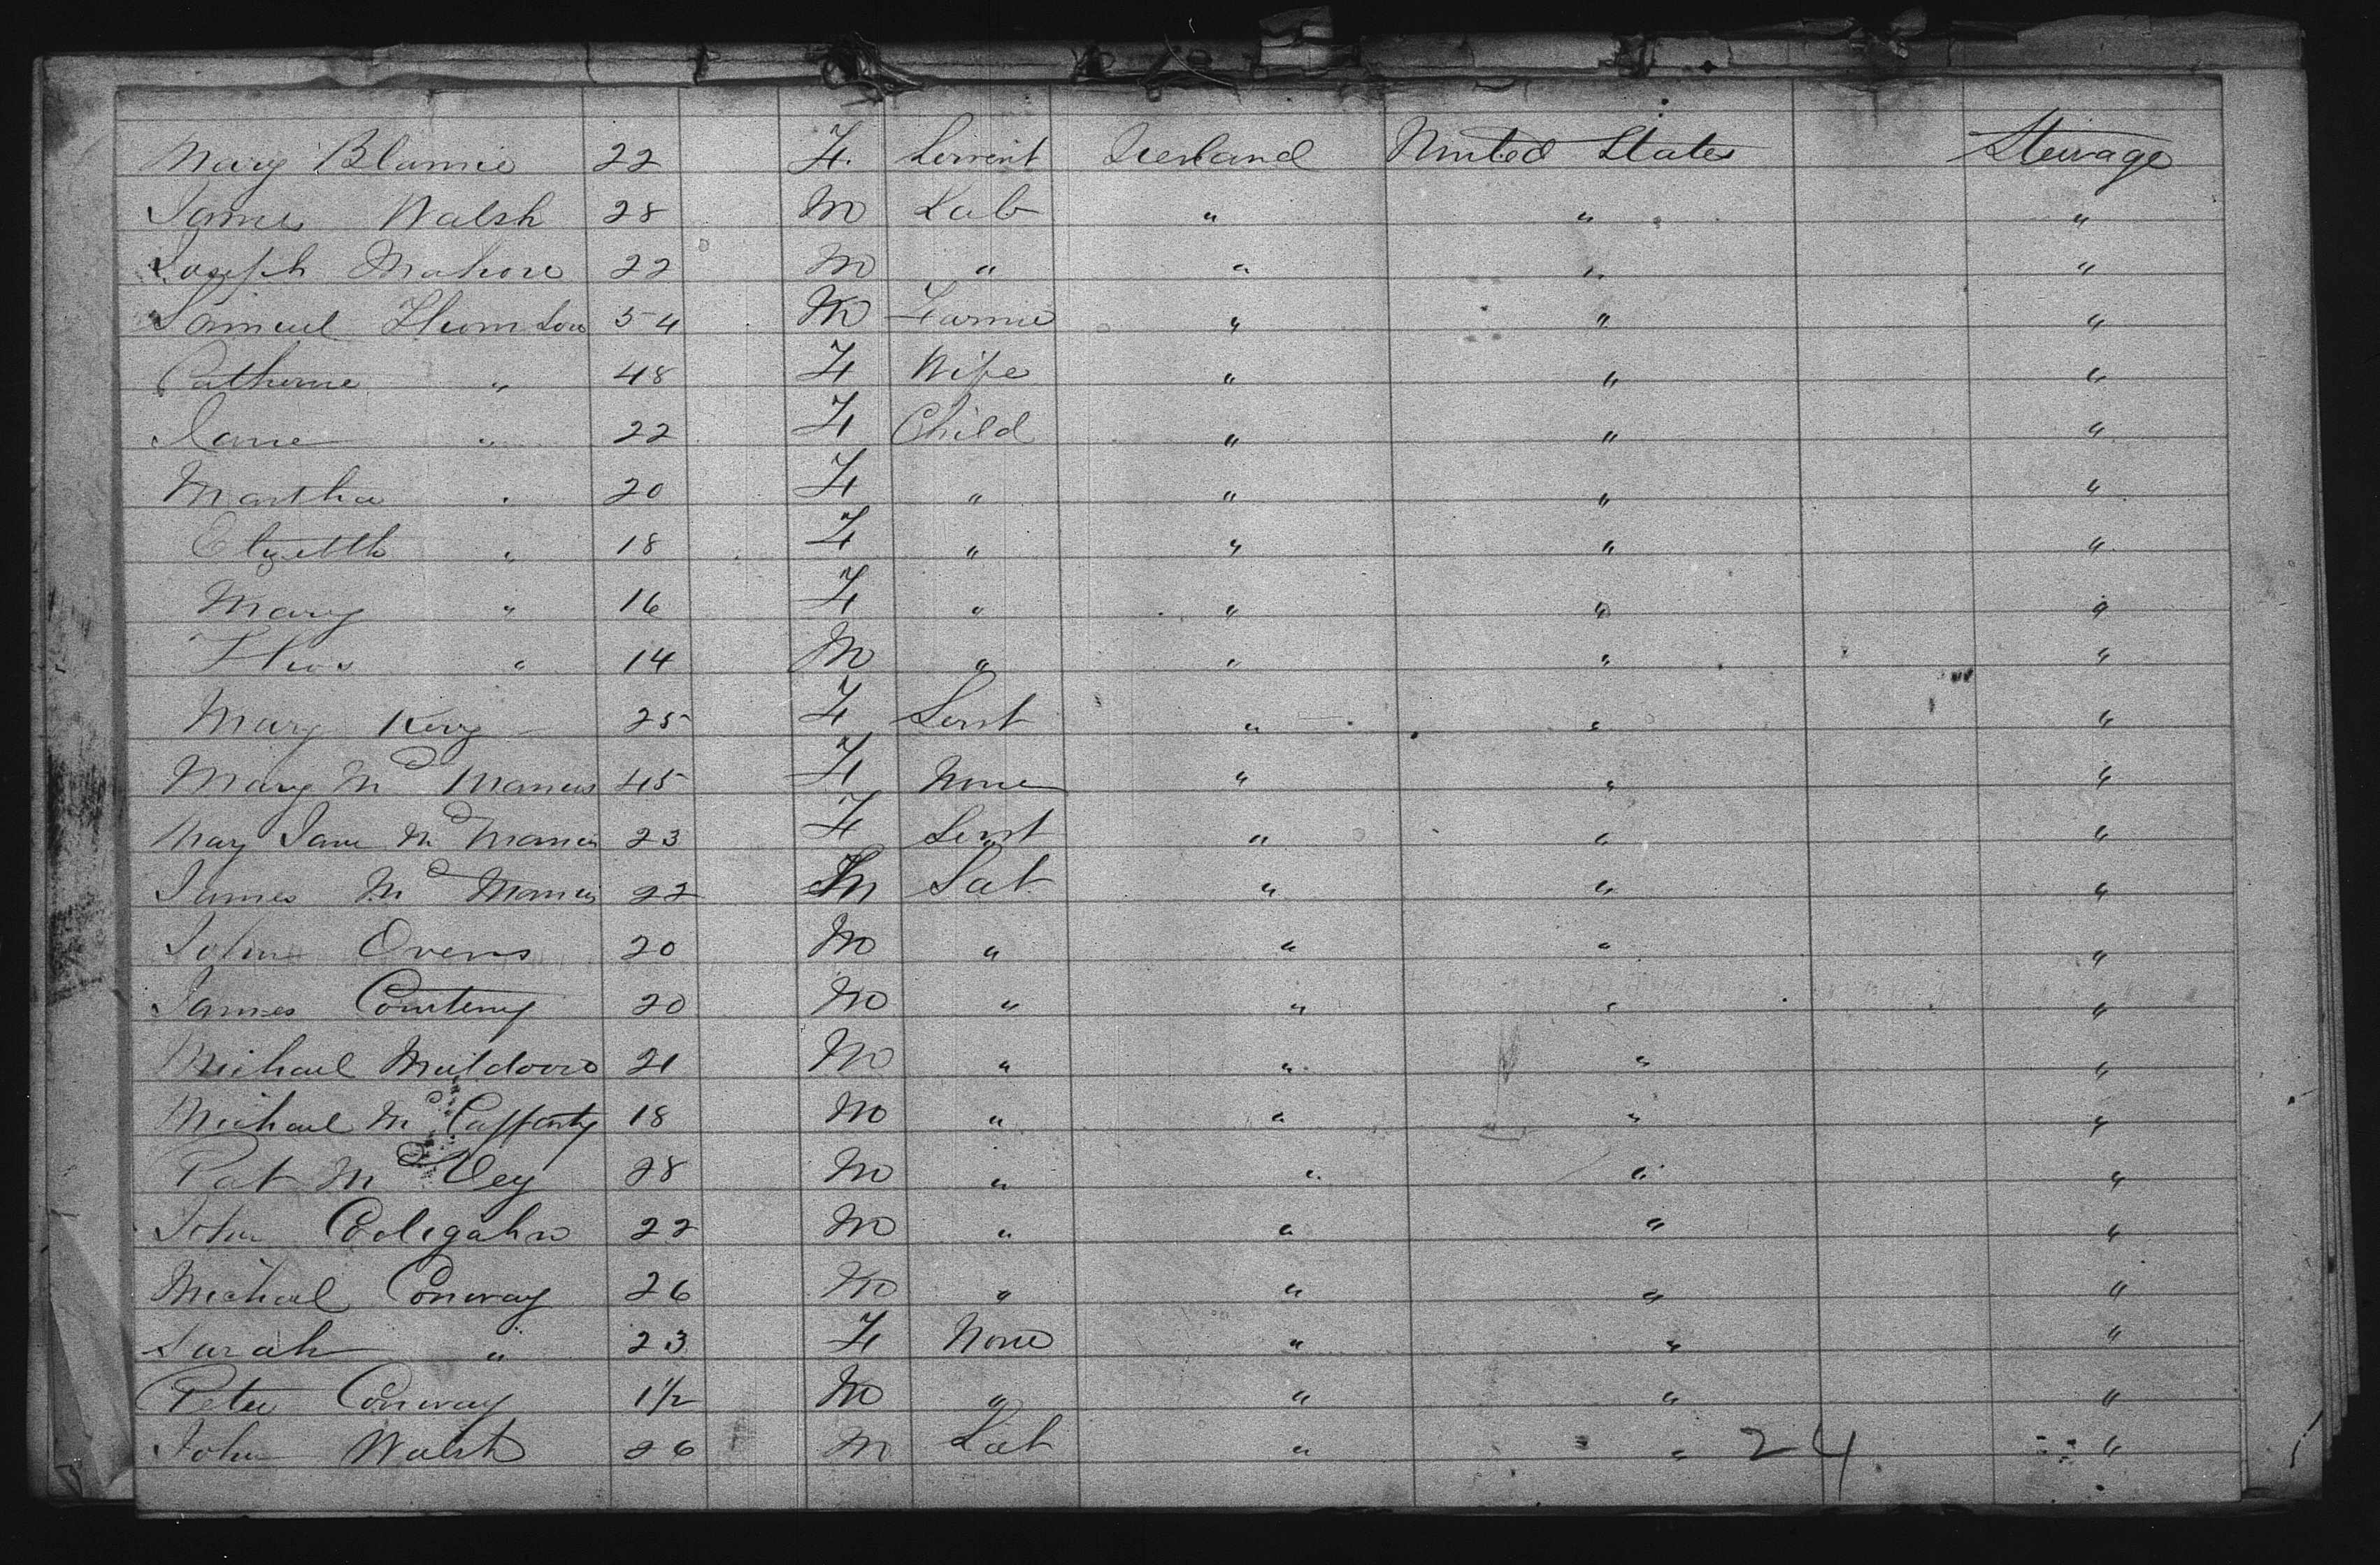 Mary Blumie 22 F. Servent Ireland United States Steirage
James Walsh 28 M Lab " " "
Joseph Mahon 22 M " " " "
Samuel Thomson 54 M Farmer " " "
Catherine " 48 F Wife " " "
Jane " 22 F Child " " "
Martha " 20 F " " " "
Elizetth " 18 F " " " "
Mary " 16 F " " " "
Thos " 14 M " " " "
Mary King 25 F Servt " " "
Mary Mc Manus 45 F None " " "
Mary Jane Mc Manus 23 F Servt " " "
James Mc Manus 22 M Lab " " "
John Ovens 20 M " " " "
James Courteny 20 M " " " "
Michael Muldoon 21 M " " " "
Michael Mc Cafferty 18 M " " " "
Pat Mc Vey 28 M " " " "
John 22 M " " " "
Michael Conway 26 M " " " "
Sarah " 23 F None " " "
Peter Conway 1 1/2 M " " " "
John Walsh 26 M Lab " " "
24